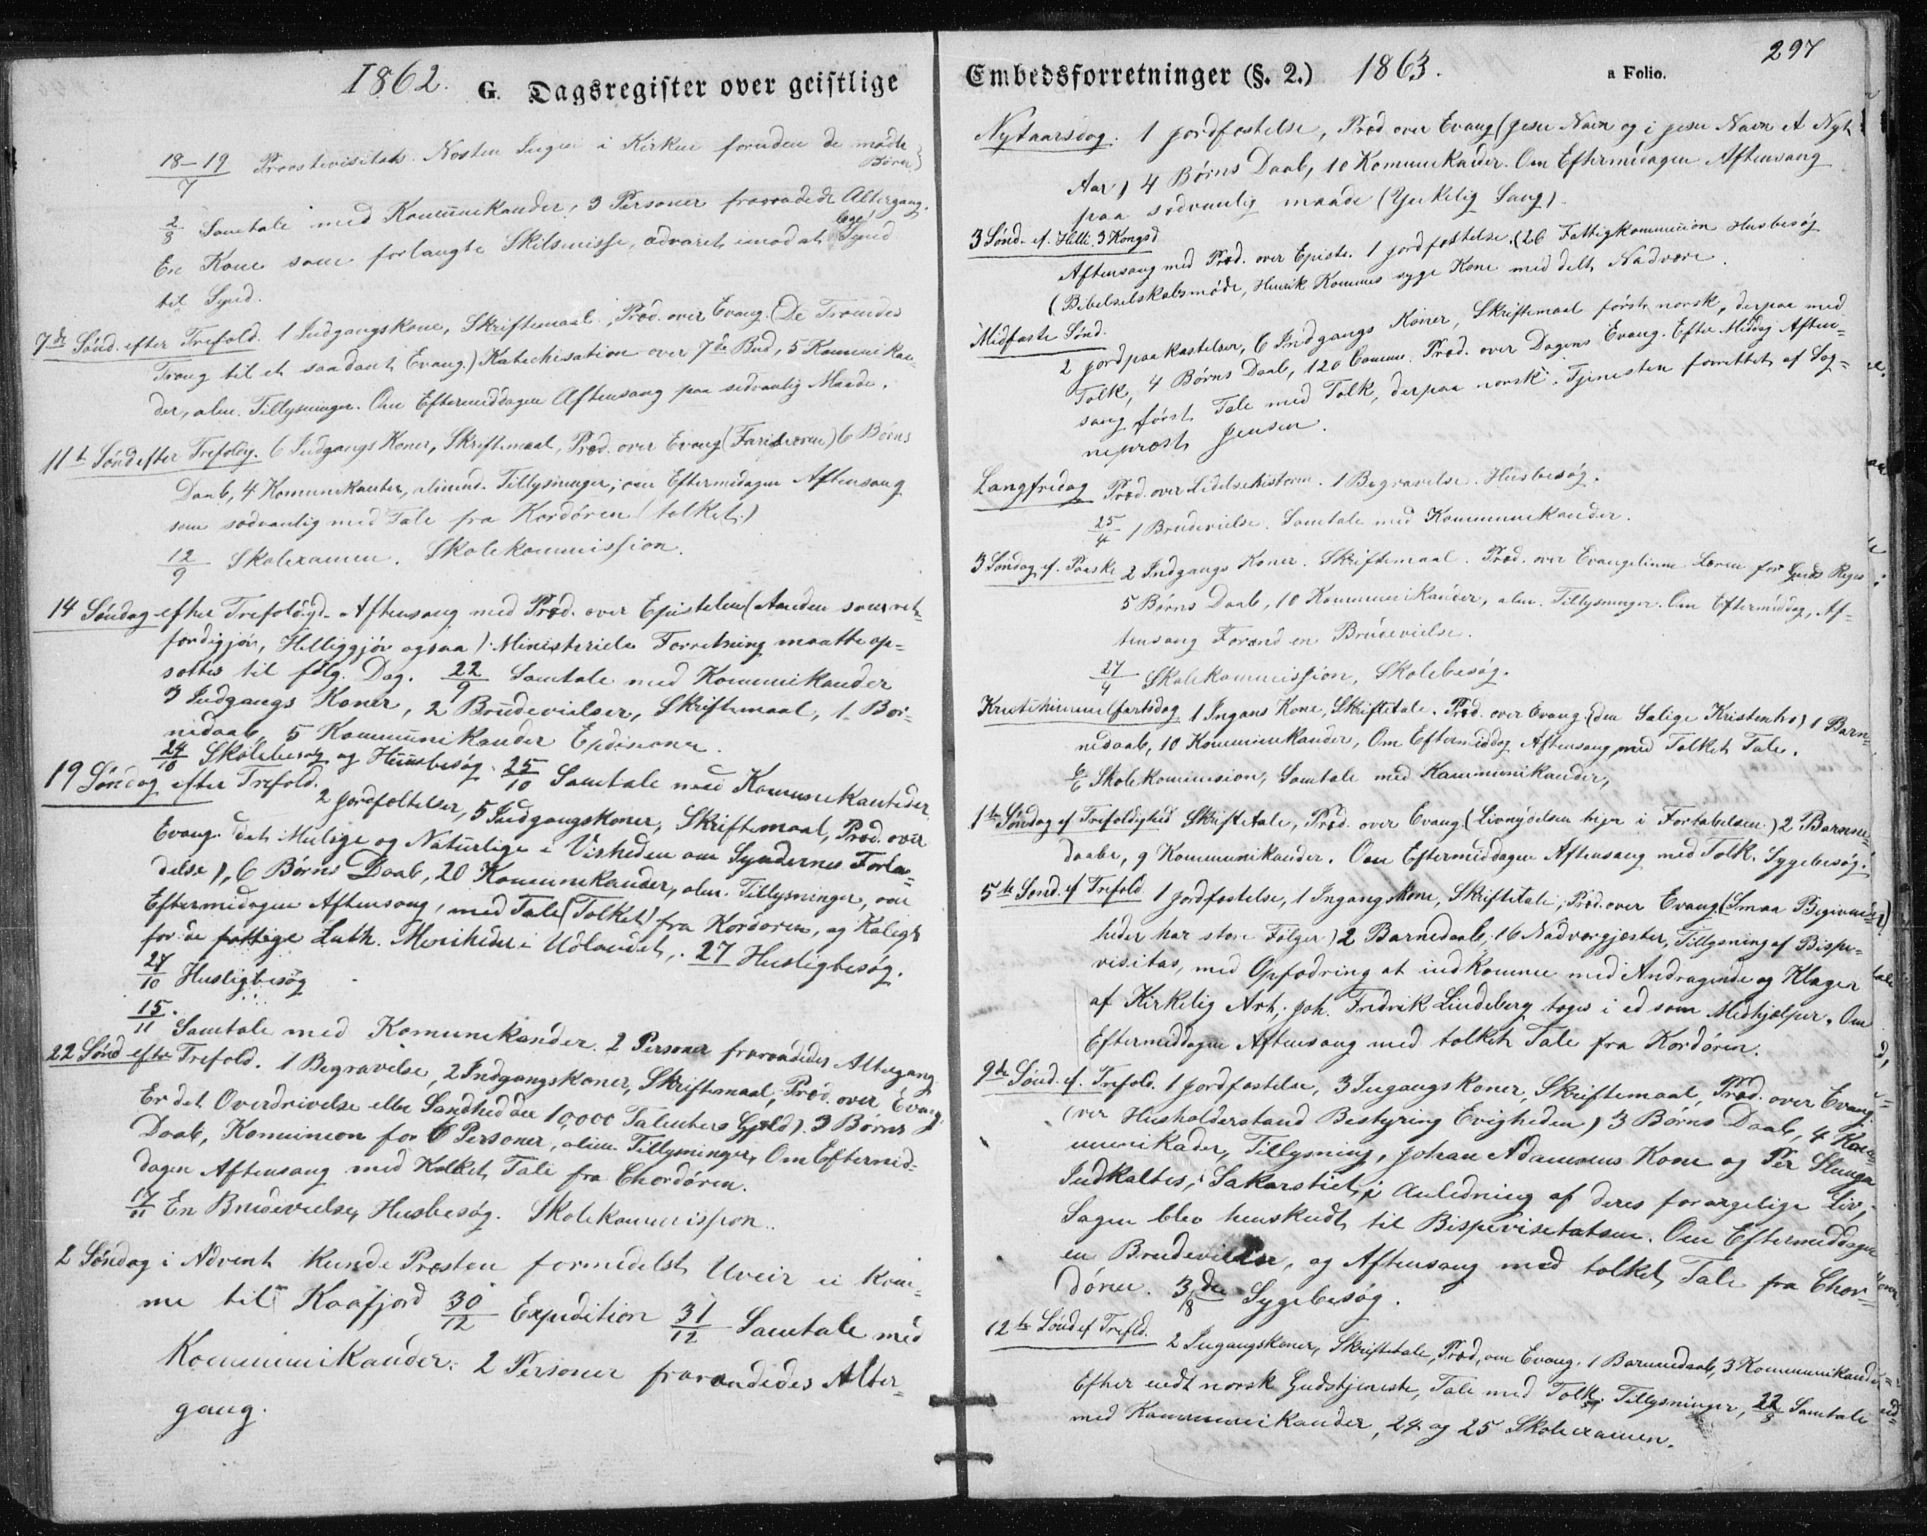 1862. G. Dagsregister over geistlige
18-19/7 Proostevisitats. Næsten Ingen i Kirken foruden de mødte Børn)
2/8 Samtale med Kommunikander, 3 Personer fraraadede Altergang.
En Kone som forlangte Skilsmisse, advaret imod at lægge Synd
til Synd.
7de Sønd. efter Trefold. 1 Indgangskone, Skriftemaal, Præd. over Evang. (De Troendes
Trang til et saadant Evang.) Katechisation over 7de Bud, 5 Kommunikan-
der, alm. Tillysninger. Om Eftermiddagen Aftensang paa sedvanlig Maade.
11te Sønd efter Trefoldg. 6 Indgangs Koner, Skriftemaal, Præd. over Evang (Fariseeren) 6 Børns
Daab, 4 Kommunikanter, almind. Tillysninger, om Eftermidagen Aftensang
som sædvanlig med Tale fra Kordøren (tolket.)
12/9 Skolexamen. Skolekommission.
14 Søndag efter Trefoldigd. Aftensang med Præd. over Epistelen (Aanden som ret-
færdigjør, Helliggjør ogsaa) Ministeriele Forretning maatte op=
sættes til følg. Dag. 22/9 Samtale med Kommunikander
3 Indgangs Koner, 2 Brudevielser, Skriftemaal, 1 Bør-
nedaab, 5 Kommunikander
24/10 Skolebesøg og Huusbesøg. 25/10 Samtale med Kommunikanteder
19 Søndag efter Trefold. 2 Jordfæstelser, 5 Indgangskoner, Skriftemaal, Præd. over
Evang. det Mulige og Naturlige i Visheden om Syndernes Forla=
delse), 6 Børns Daab, 20 Kommunikander, alm. Tillysninger, om
Eftermidagen Aftensang, med Tale (Tolket) fra Kordøren, og
for de fattige Luth. Menigheder i Udlandet. 27 Husligbesøg.
27/10 Husligbesøg
15/11 Samtale med Komunikander. 2 Personer fraraadedes Altergang
22 Sønd efter Trefold. 1 Begravelse, 2 Indgangskoner, Skriftemaal, Præd. over Evang
Er det Overdrivelse eller Sandhed om 10,000 Talenters Gjeld). 3 Børns
Daab, Komunion for 6 Personer, alm. Tillysninger, Om Eftermid-
dagen Aftensang med tolket Tale fra Chordøren.
17/11 En Brudevielse, Husbesøg. Skolekommission.
2 Søndag i Advent kunde Præsten formedelst Uveir ei kom-
me til Kaafjord 30/12 Expedition 31/12 Samtale med
Kommunikander: 2 Personer fraraadedes Alter-
gang.
Embedsforretninger (§. 2.) 1863. a Folio. 297
Nytaarsdag. 1 Jordfæstelse, Præd over Evang (Jesu Navn og i Jesu Navn et Nyt
Aar) 4 Børns Daab, 10 Kommunikander. Om Eftermidagen Aftensang
paa sædvanlig maade (Ynkelig Sang).
3 Sønd. ef. Helli. 3 Kongsd
Aftensang med Præd. over Episte. 1 Jordfæstelse. (26 Fattigkommission Husbesøg
(Bibelselskabsmøde, Henrik syge Kone med delt Nadvere.
Midfaste Sønd.
2 Jordpaakastelser, 6 Indgangs Koner, Skriftemaal først norsk, derpaa med
Tolk, 4 Børns Daab, 120 Comm. Præd. over Dagens Evang. Efter Middag Aften-
sang først Tale med Tolk, derpaa norsk. Tjenesten forrettet af Sog=
nepræst Jensen.
Langfredag Præd. over Lidelseshistorien. 1 Begravelse. Husbesøg.
25/4 1 Brudevielse. Samtale med Kommunikander.
3 Søndag ef. Paaske 2 Indgangs Koner. Skriftemaal. Præd. over Evangelium for Guds Riges
5 Børns Daab, 10 Kommunikander, alm. Tillysninger. Om Eftermiddag, Af-
tensang Forend en Brudevielse.
27/4 Skolekommission, Skolebesøg.
Kristihimmelfartsdag 1 Ingans Kone, Skriftetale. Præd. over Evang (den Salige Kristentro) 1 Barn=
nedaab, 10 Kommunikander, Om Eftermiddag Aftensang med Tolket Tale.
6/6 Skolekommission, Samtale med Kammunikander,
1te Søndag ef Trefoldighed Skriftetale, Præd over Evang (Livnydelsen i Fortabelsen) 2 Barne-
daabe, 9 Kommunikander. Om Eftermiddagen Aftensang med Tolk. Sygebesøg.
5te Sønd. ef Trefold. 1 Jordfæstelse, 1 Ingangskone, Skriftetale, Præd. over Evang (Smaa Begiven=
heder har store Følger) 2 Barnedaab, 16 Nadvergjæster, Tillysning af Bispe-
visitas, med Opfodring at indkomme med Andragende og Klager
af Kirkelig Art, Joh. Fredrik Lindeberg toges i ed som Medhjælper. Om
Eftermiddagen Aftensang med tolket Tale fra Kordøren.
9de Sønd. ef. Trefold. 1 Jordfæstelse, 3 Ingangs Koner, Skriftemaal, Præd. over Evang
(vor Husholderstand Bestyring Evigheden) 3 Børns Daab, 4 Kom-
munikader, Tillysning, Johan Adamsens Kone og Per Slunga
Indkaltes, i Sakarstiet, i Anledning af deres forargelige Liv,
Sagen blev henskudt til Bispevisetatsen. Om Eftermiddagen
en Brudevielse, og Aftensang med tolket Tale fra Chor-
døren. 3de/8 Sygebesøg.
12te Sønd ef Trefld. 2 Ingangskoner, Skriftetale, Præd, om Evang. 1 Barnedaab, 3 Kommunikander
Efter endt norsk Gudstjeneste, Tale med Tolk. Tillysninger, 22/8 Samtale
med Kommunikander, 24 og 25 Skolexamen.